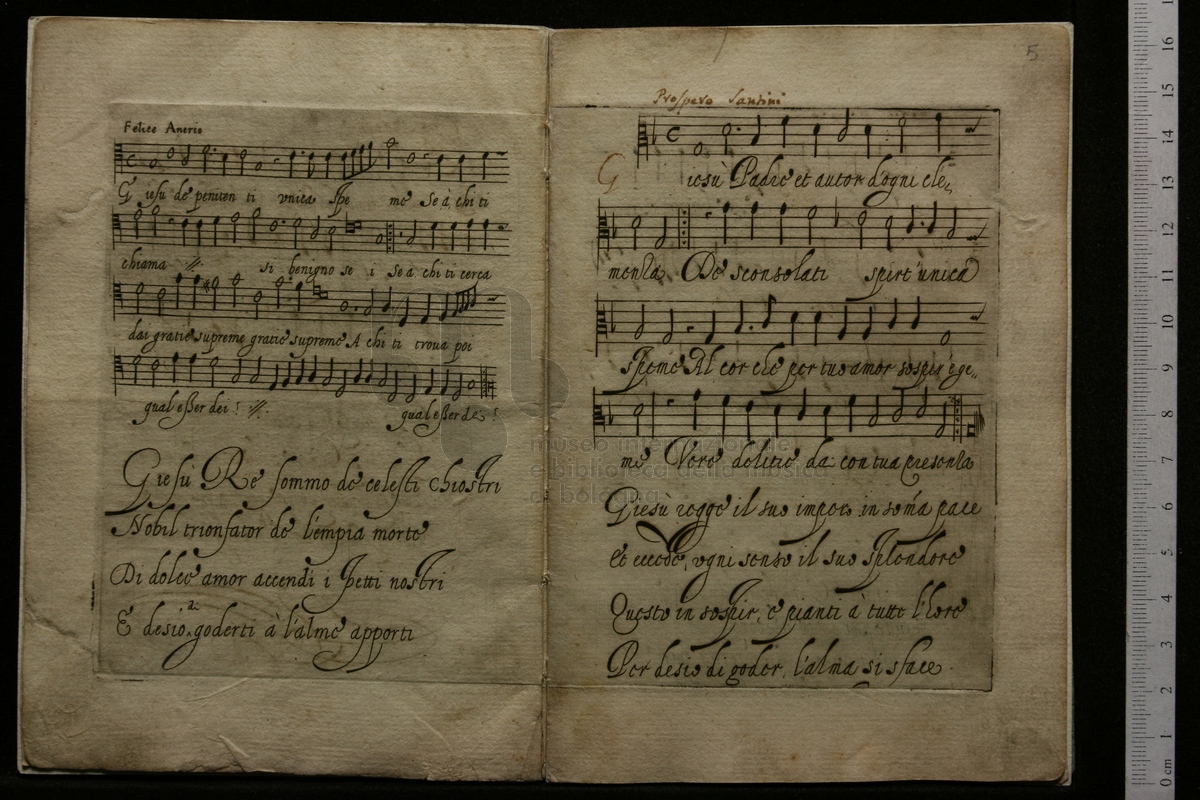 Felice Anerio
Giesu de peniten ti unica spe me Se à chi ti
chiama :ij: si benigno se i se à chi ti cerca
dai gratie supreme gratie supreme A chi ti trova poi
qual esser dei? :ij: qual esser de i?
Giesù Re sommo de celesti chiostri
Nobil trionfator de l'empia morte
Di dolce amor accendi i petti nostri
E desio di goderti à l'alme apporti
5
Prospero Santini
Giesù Padre et autor d'ogni cle,,
menza De sconsolati spirti unica
speme Al cor che per tuo amor sospir' e ge,,
me Vere delitie da con tua presenza
Giesù regge il suo impero in somma pace
Et eccede, ogni senso il suo splendore
Questo in sospir, e pianti à tutte l'hore
Per desio di goder, l'alma si sface.
museo internazionale
e biblioteca della musica
di bologna
0 cm 1 2 3 4 5 6 7 8 9 10 11 12 13 14 15 16